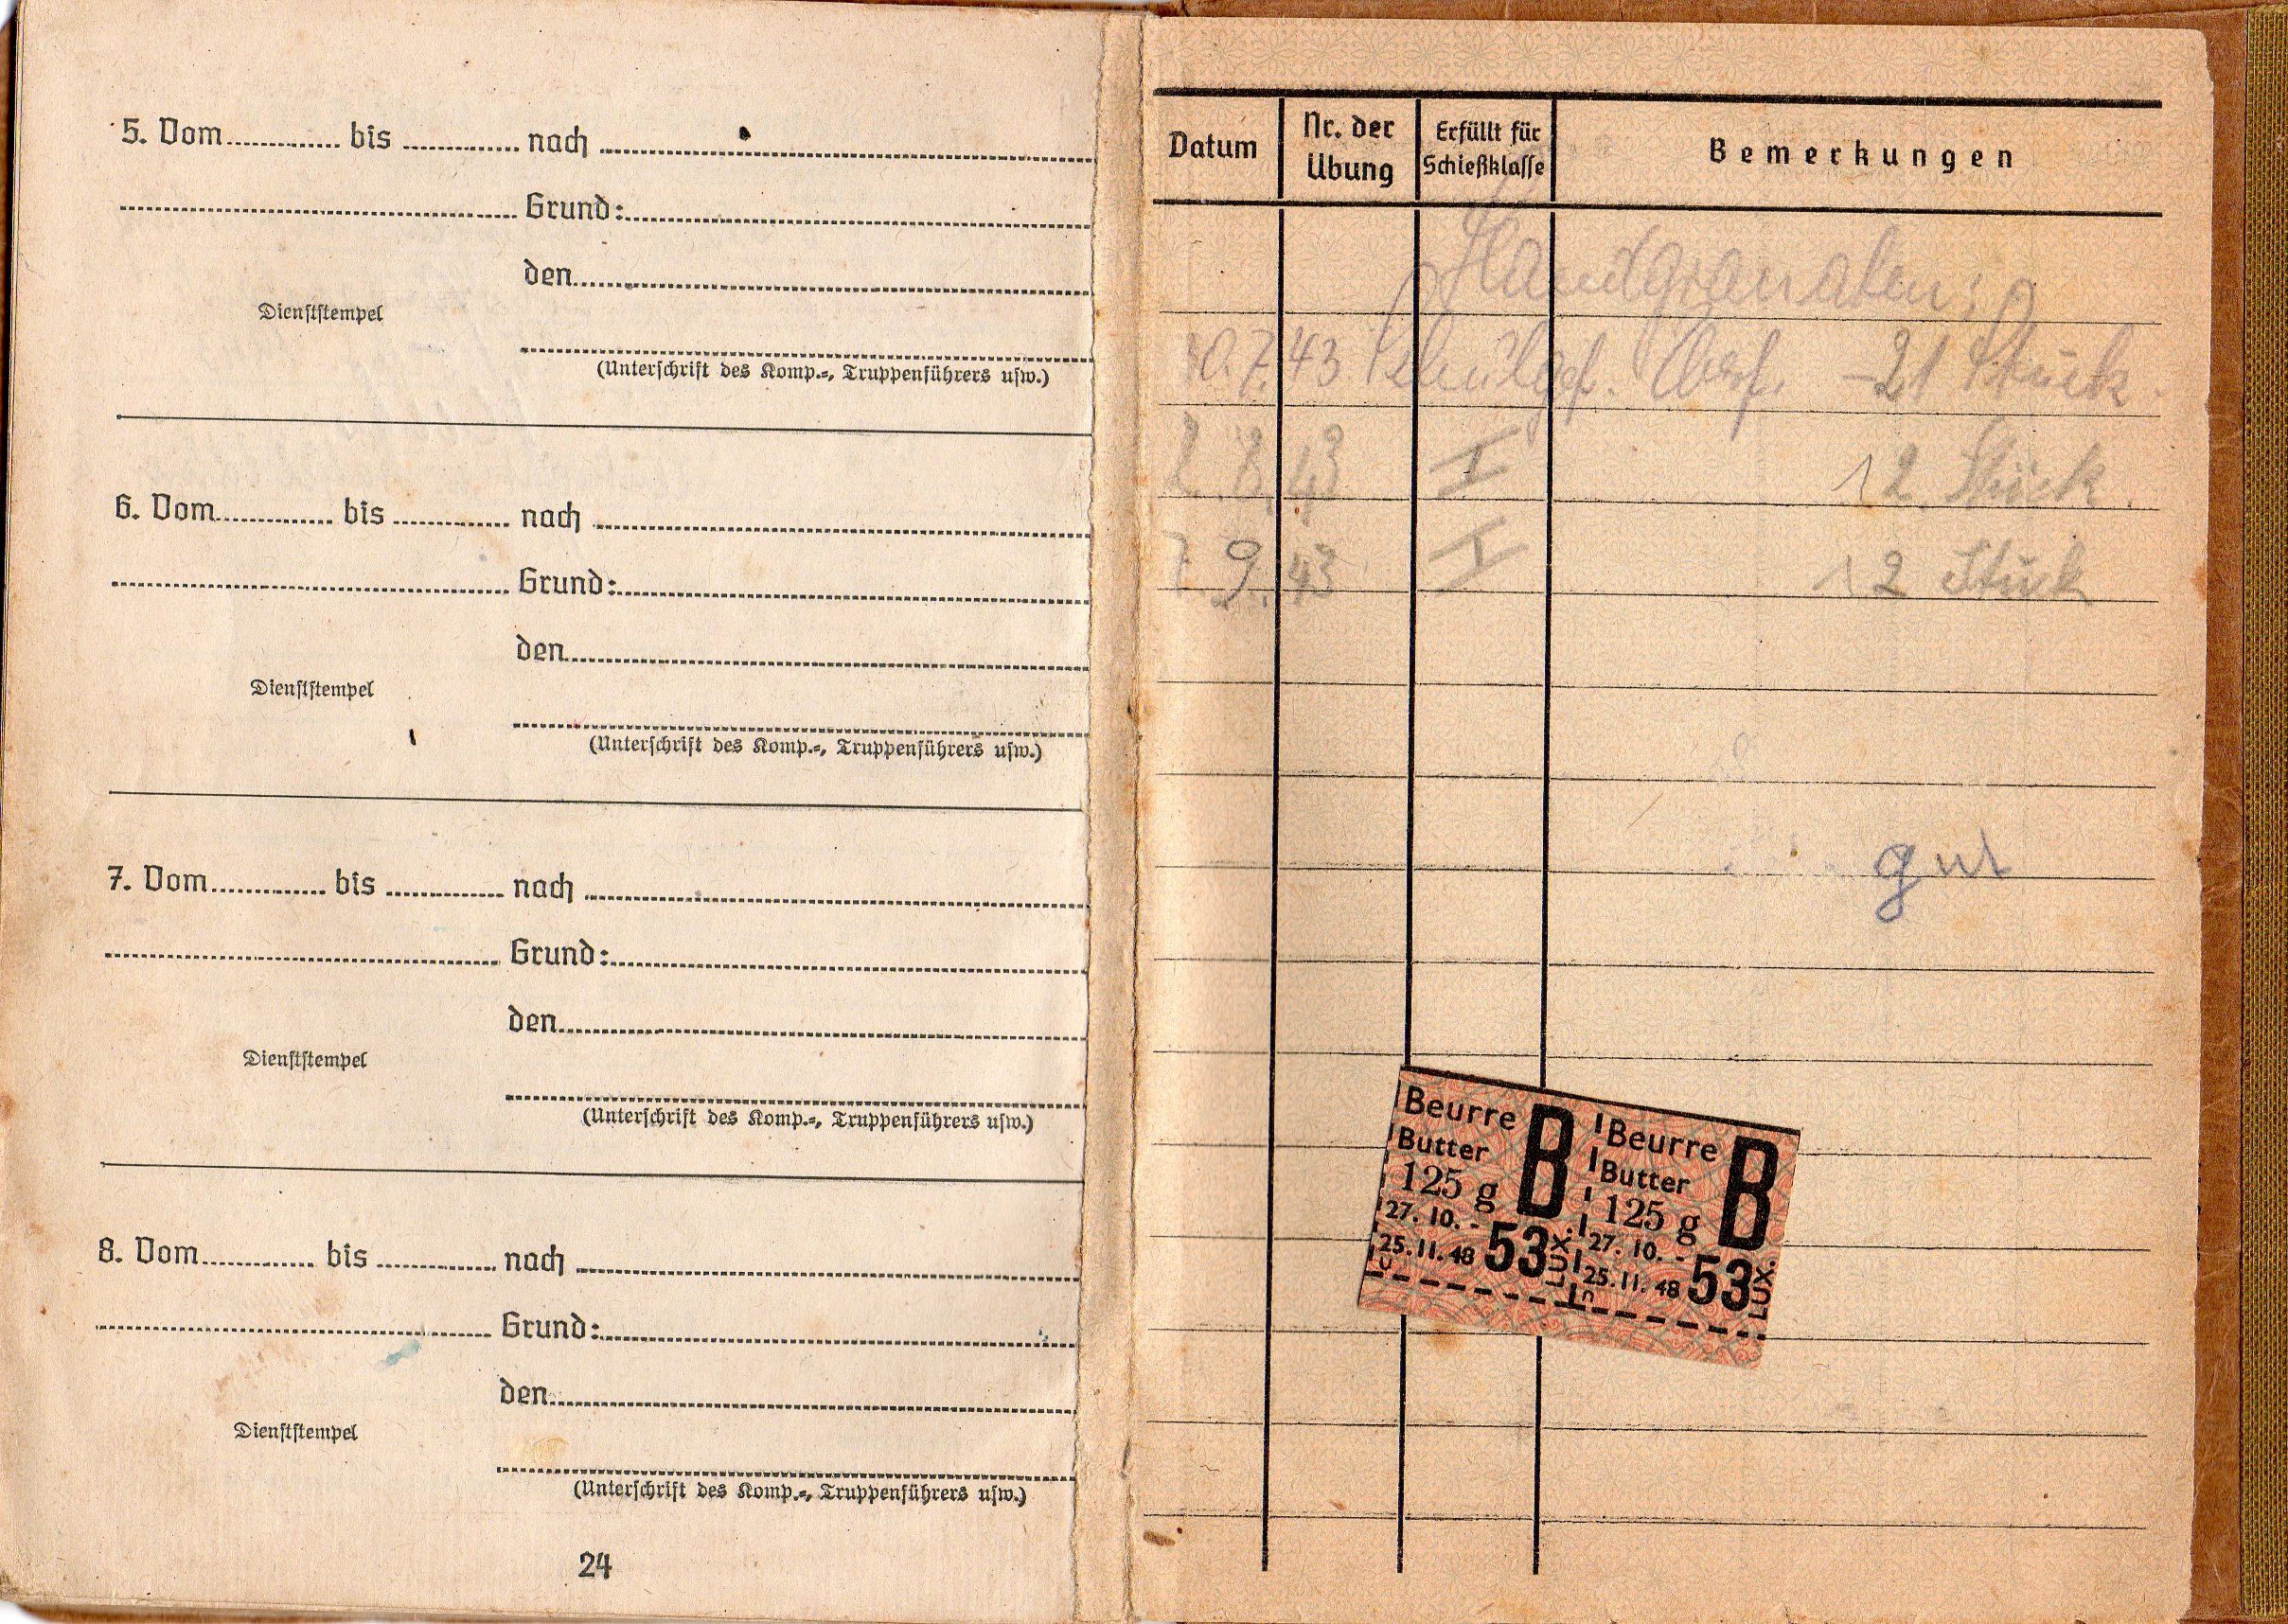 5. Vom ............ bis ............ nach ............
............ Grund: ............
den ............
Dienststempel
(Unterschrift des Komp.-, Truppenführers usw.)
6. Vom ............ bis ............ nach ............
............ Grund: ............
den ............
Dienststempel
(Unterschrift des Komp.-, Truppenführers usw.)
7. Vom ............ bis ............ nach ............
............ Grund: ............
den ............
Dienststempel
(Unterschrift des Komp.-, Truppenführers usw.)
8. Vom ............ bis ............ nach ............
............ Grund: ............
den ............
Dienststempel
(Unterschrift des Komp.-, Truppenführers usw.)
24
Datum Nr. der Übung Erfüllt für Schießklasse Bemerkungen
Handgranaten:
7.43 21 Stück
43 I 12 Stück.
9. 43 I 12 Stück
gut
Beurre B Beurre B
Butter Butter
125 g 125 g
27. 10. - 53 27. 10. - 53
25. 11. 48 LUX. 25. 11. 48 LUX.